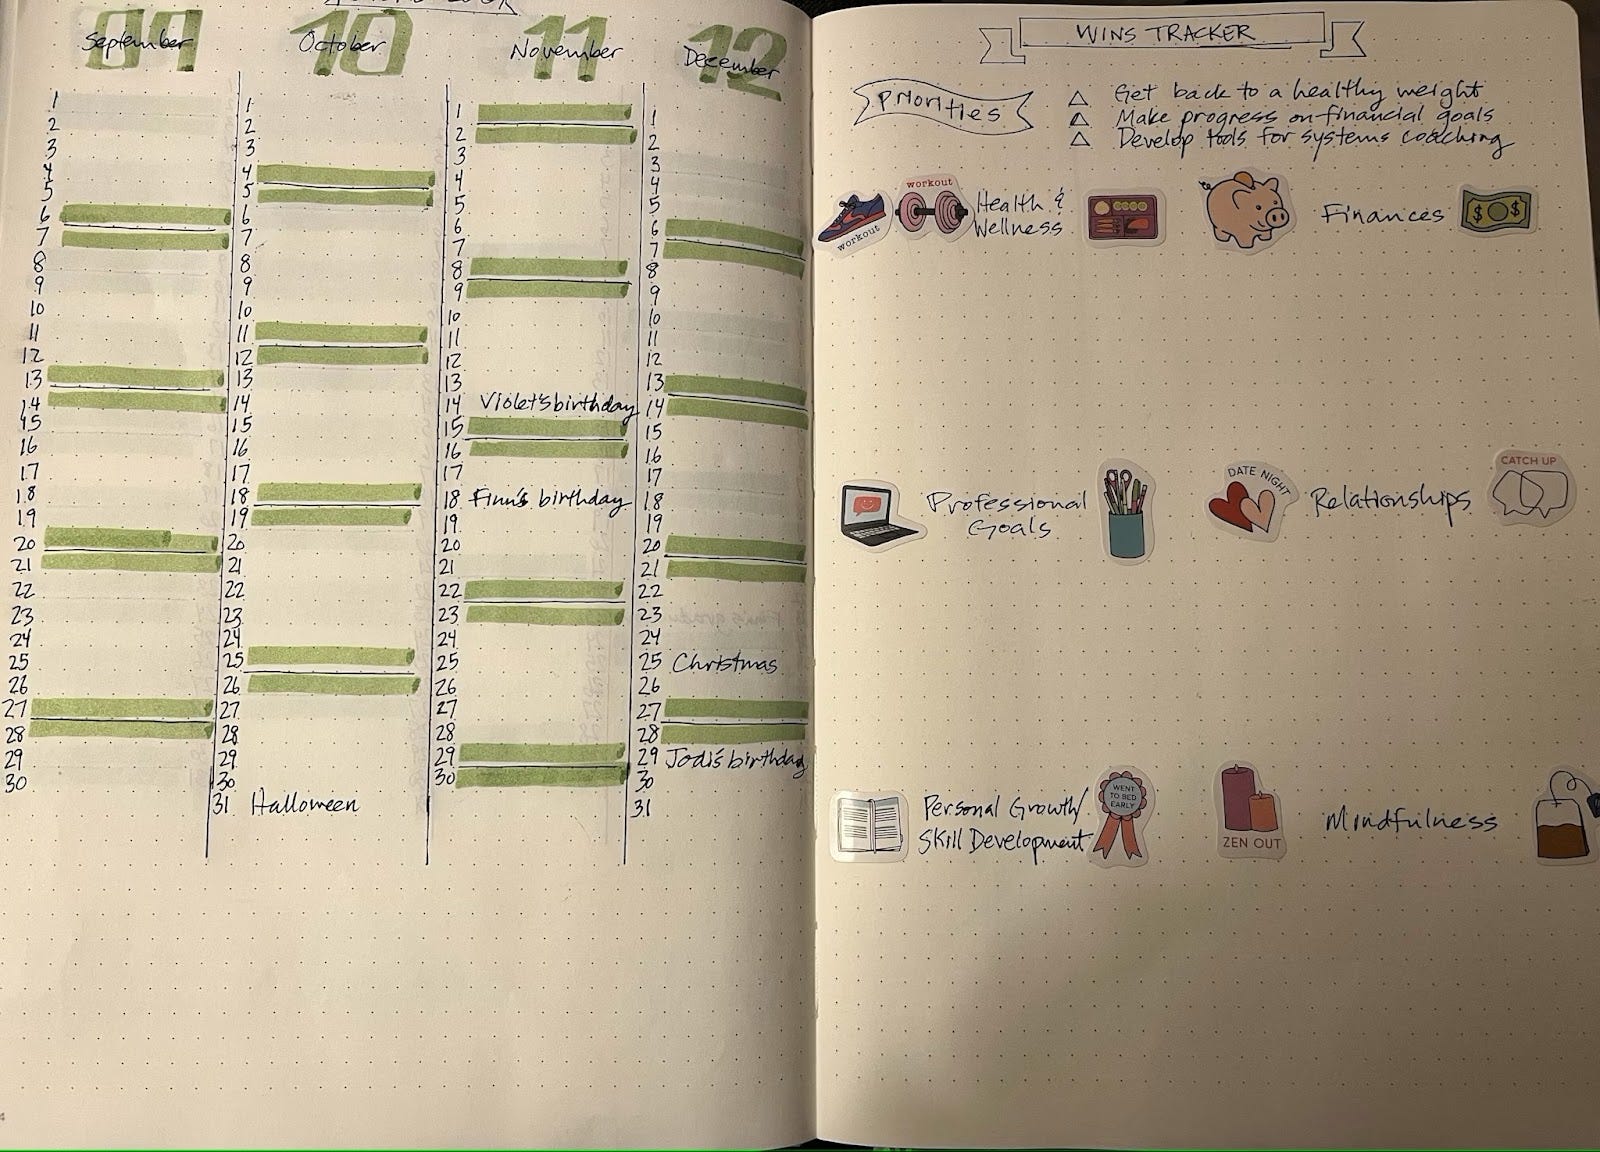 09 10 11 12
September October November December
1
2
3
4
5
6
7
8
9
10
11
12
13
14
15
16
17
18
19
20
21
22
23
24
25
26
27
28
29
30
1
2
3
4
5
6
7
8
9
10
11
12
13
14
15
16
17
18
19
20
21
22
23
24
25
26
27
28
29
30
31 Halloween
1
2
3
4
5
6
7
8
9
10
11
12
13
14 Violet's birthday
15
16
17
18 Finn's birthday
19
20
21
22
23
24
25
26
27
28
29
30
1
2
3
4
5
6
7
8
9
10
11
12
13
14
15
16
17
18
19
20
21
22
23
24
25 Christmas
26
27
28
29 Jodi's birthday
30
31
WINS TRACKER
Priorities
Get back to a healthy weight
Make progress on financial goals
Develop tools for systems coaching
workout
workout
Health &
Wellness
Finances
$ $
Professional
Goals
DATE NIGHT
Relationships
CATCH UP
Personal Growth/
Skill Development
WENT
TO BED
EARLY
ZEN OUT
Mindfulness